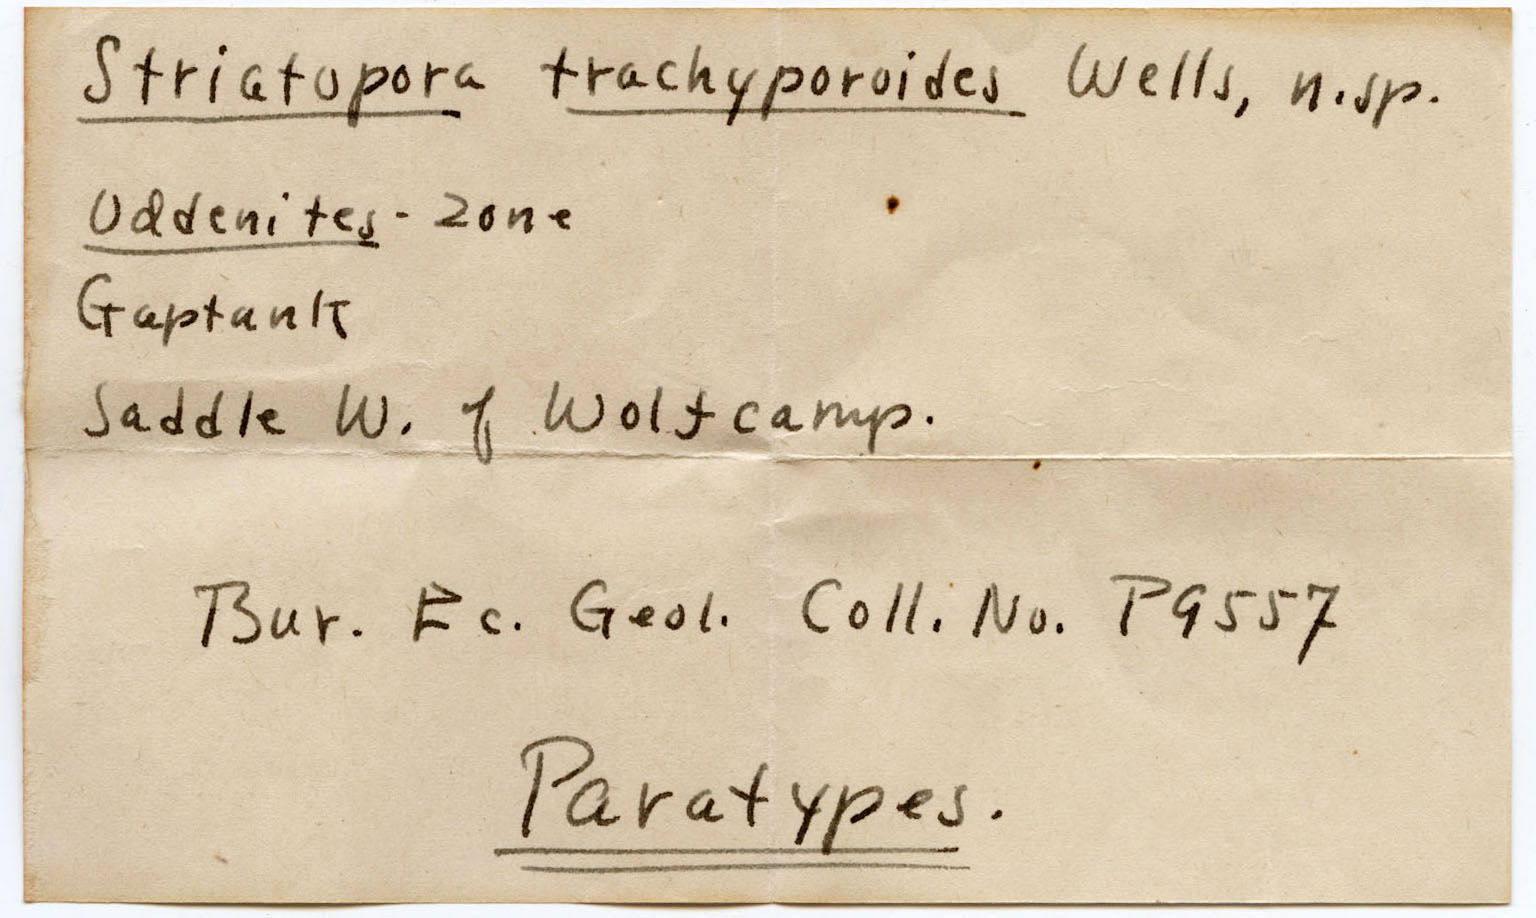 Striatopora trachyporoides Wells, n.sp.
Uddenites-zone
Gaptank
Saddle W. of Wolfcamp.
Bur. Ec. Geol. Coll. No. P9557
Paratypes.